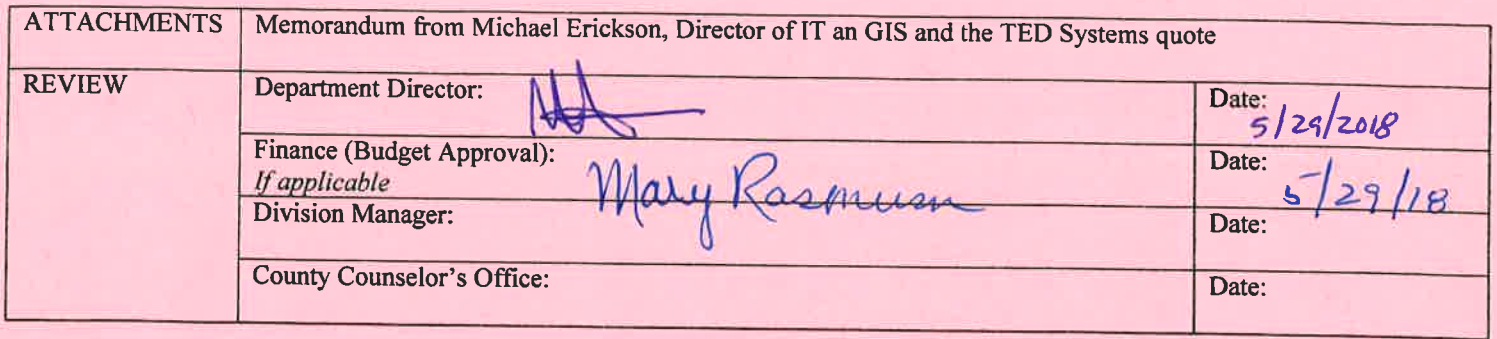 ATTACHMENTS
Memorandum from Michael Erickson, Director of IT an GIS and the TED Systems quote
REVIEW
Department Director:
Date:
5/29/2018
Finance (Budget Approval):
If applicable
Mary Rasmussen
Date:
5/29/18
Division Manager:
Date:
County Counselor's Office:
Date: